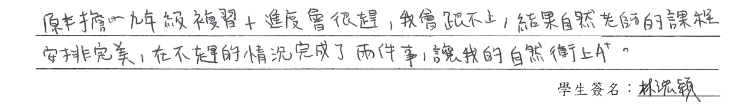 原本擔心九年級複習+進度會很趕，我會跟不上，結果自然老師的課程
安排完美，在不趕的情況完成了兩件事，讓我的自然衝上A+。
學生簽名：林